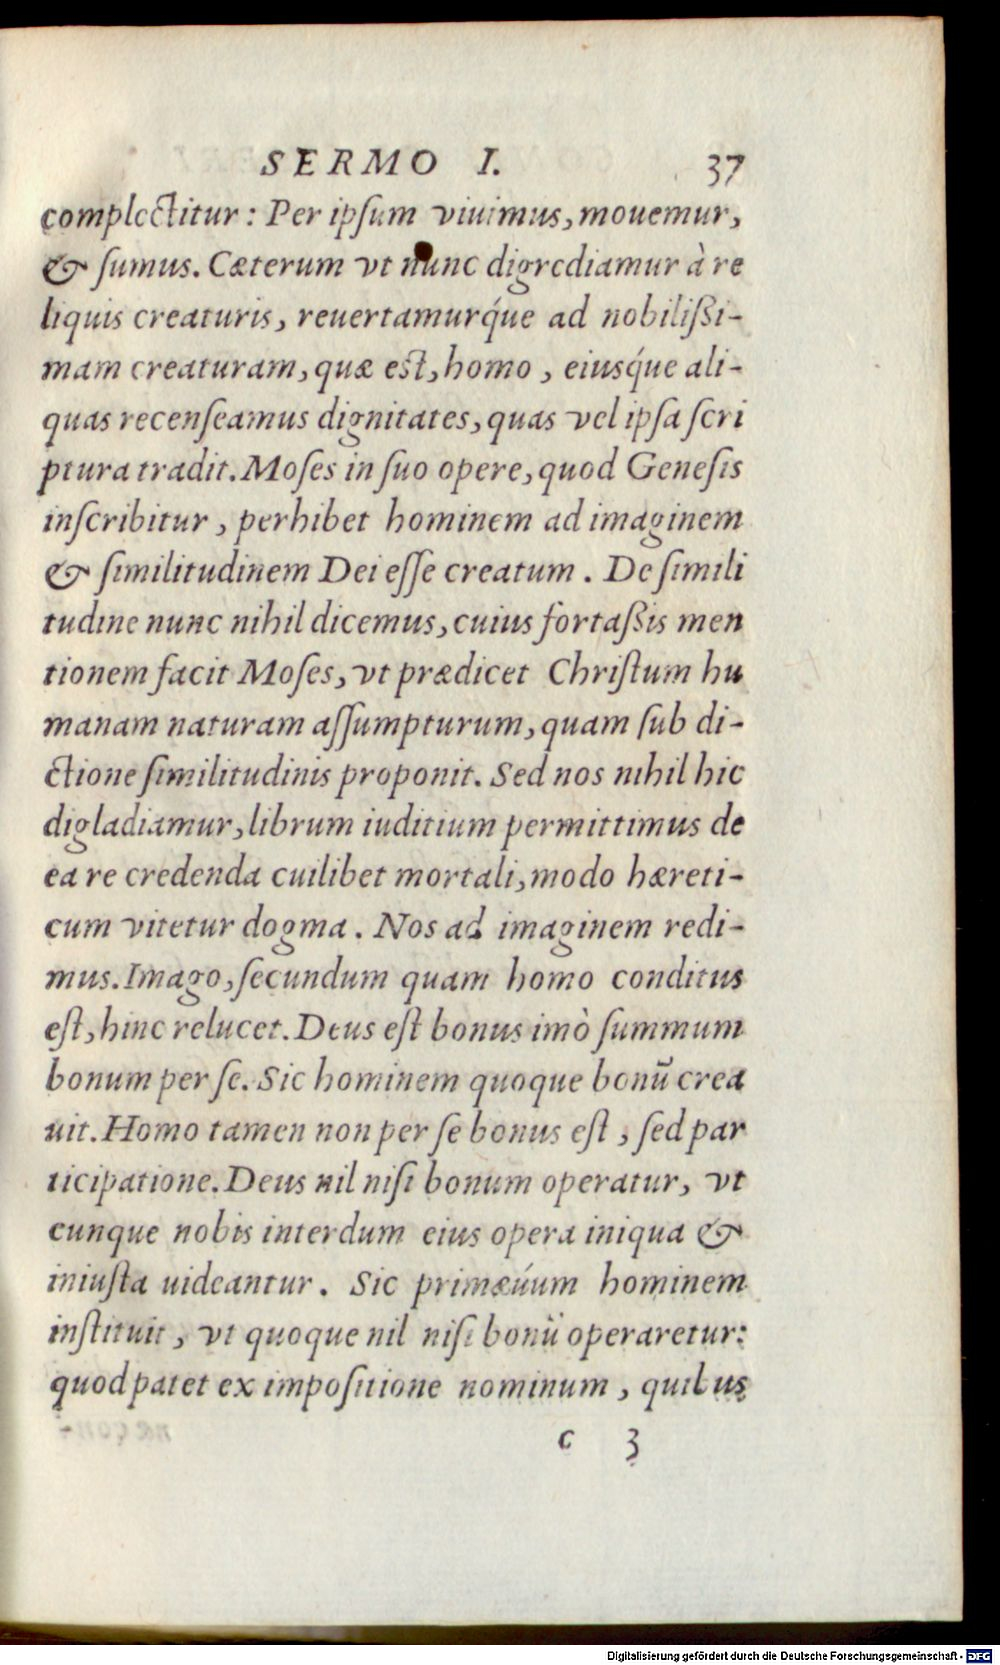 SERMO I. 37
complectitur: Per ipſum viuimus, mouemur,
& ſumus. Cæterum vt nunc digrediamur à re
liquis creaturis, reuertamurq́ue ad nobilißi-
mam creaturam, quæ est, homo, eiusq́ue ali-
quas recenſeamus dignitates, quas vel ipſa ſcri
ptura tradit. Moſes in ſuo opere, quod Geneſis
inſcribitur, perhibet hominem ad imaginem
& ſimilitudinem Dei eſſe creatum. De ſimili
tudine nunc nihil dicemus, cuius fortaßis men
tionem facit Moſes, vt prædicet Chriſtum hu
manam naturam aſſumpturum, quam ſub di-
ctione ſimilitudinis proponit. Sed nos nihil hic
digladiamur, librum iuditium permittimus de
ea re credenda cuilibet mortali, modo hæreti-
cum vitetur dogma. Nos ad imaginem redi-
mus. Imago, ſecundum quam homo conditus
eſt, hinc relucet. Deus eſt bonus imò ſummum
bonum per ſe. Sic hominem quoque bonū crea
uit. Homo tamen non per ſe bonus eſt, ſed par
ticipatione. Deus nil niſi bonum operatur, vt
cunque nobis interdum eius opera iniqua &
iniuſta uideantur. Sic primæúum hominem
inſtituit, vt quoque nil niſi bonū operaretur:
quod patet ex impoſitione nominum, quibus
c 3
Digitalisierung gefördert durch die Deutsche Forschungsgemeinschaft - DFG